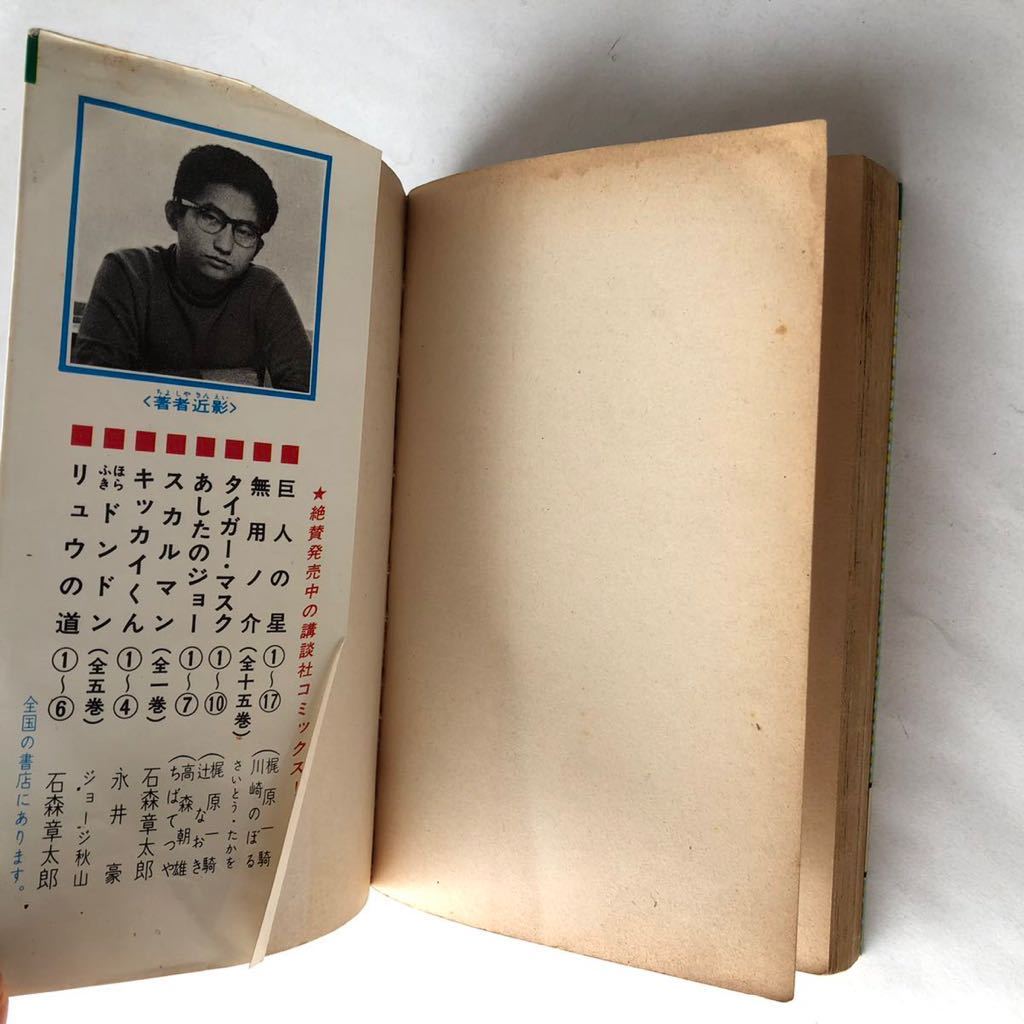 ちよしやきんえい
〈著者近影〉
★絶賛発売中の講談社コミックス!
巨人の星 ①~⑰ (梶原一騎 川崎のぼる
無用ノ介 (全十五巻) さいとう・たかを
タイガー・マスク ①~⑩ (梶原一騎 辻なおき
あしたのジョー ①~⑦ (高森朝雄 ちばてつや
スカルマン (全一巻) 石森章太郎
キッカイくん ①~④ 永井豪
ほらふきドンドン (全五巻) ジョージ秋山
リュウの道 ①~⑥ 石森章太郎
全国の書店にあります。